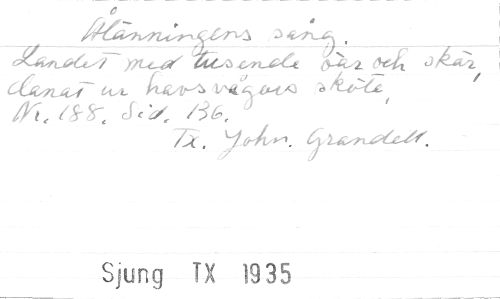 Ålänningens sång.
Landet med tusende öar och skär,
danat ur havsvågors sköte,
Nr. 188. Sid. 136.
Tx. John. Grandell.
Sjung TX 1935